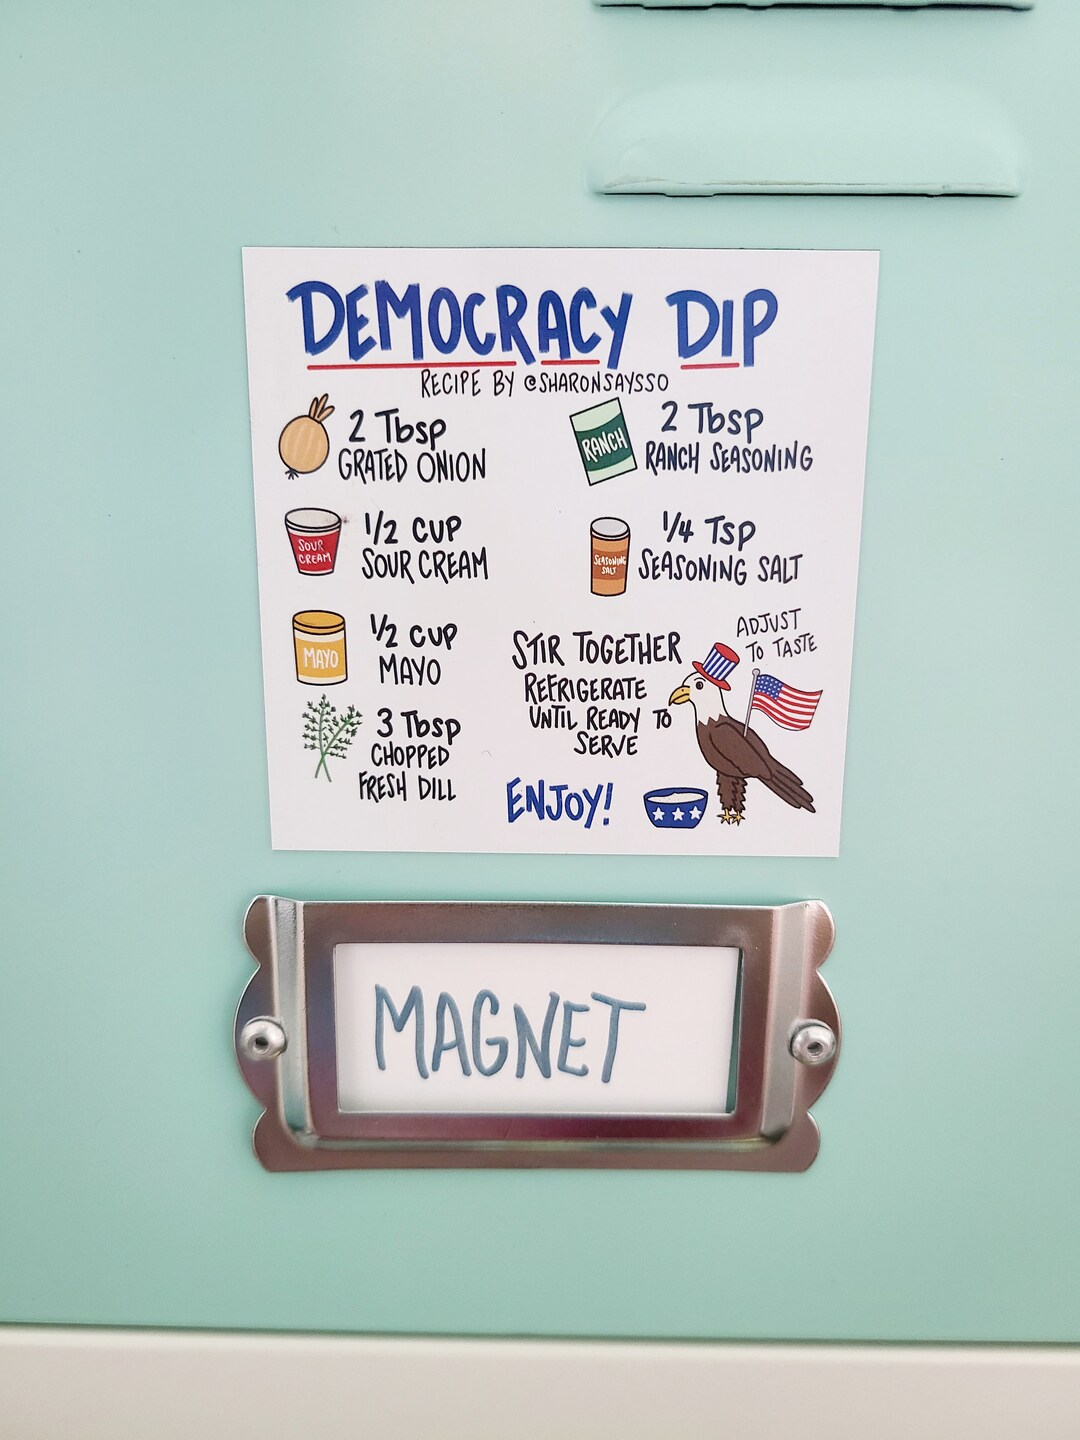 DEMOCRACY DIP
RECIPE BY @SHARONSAYSSO
2 Tbsp
GRATED ONION
RANCH
2 Tbsp
RANCH SEASONING
SOUR
CREAM
1/2 CUP
SOUR CREAM
SEASONING
SALT
1/4 TSP
SEASONING SALT
MAYO
1/2 CUP
MAYO
3 Tbsp
CHOPPED
FRESH DILL
STIR TOGETHER
REFRIGERATE
UNTIL READY TO
SERVE
ADJUST
TO TASTE
ENJOY!
MAGNET